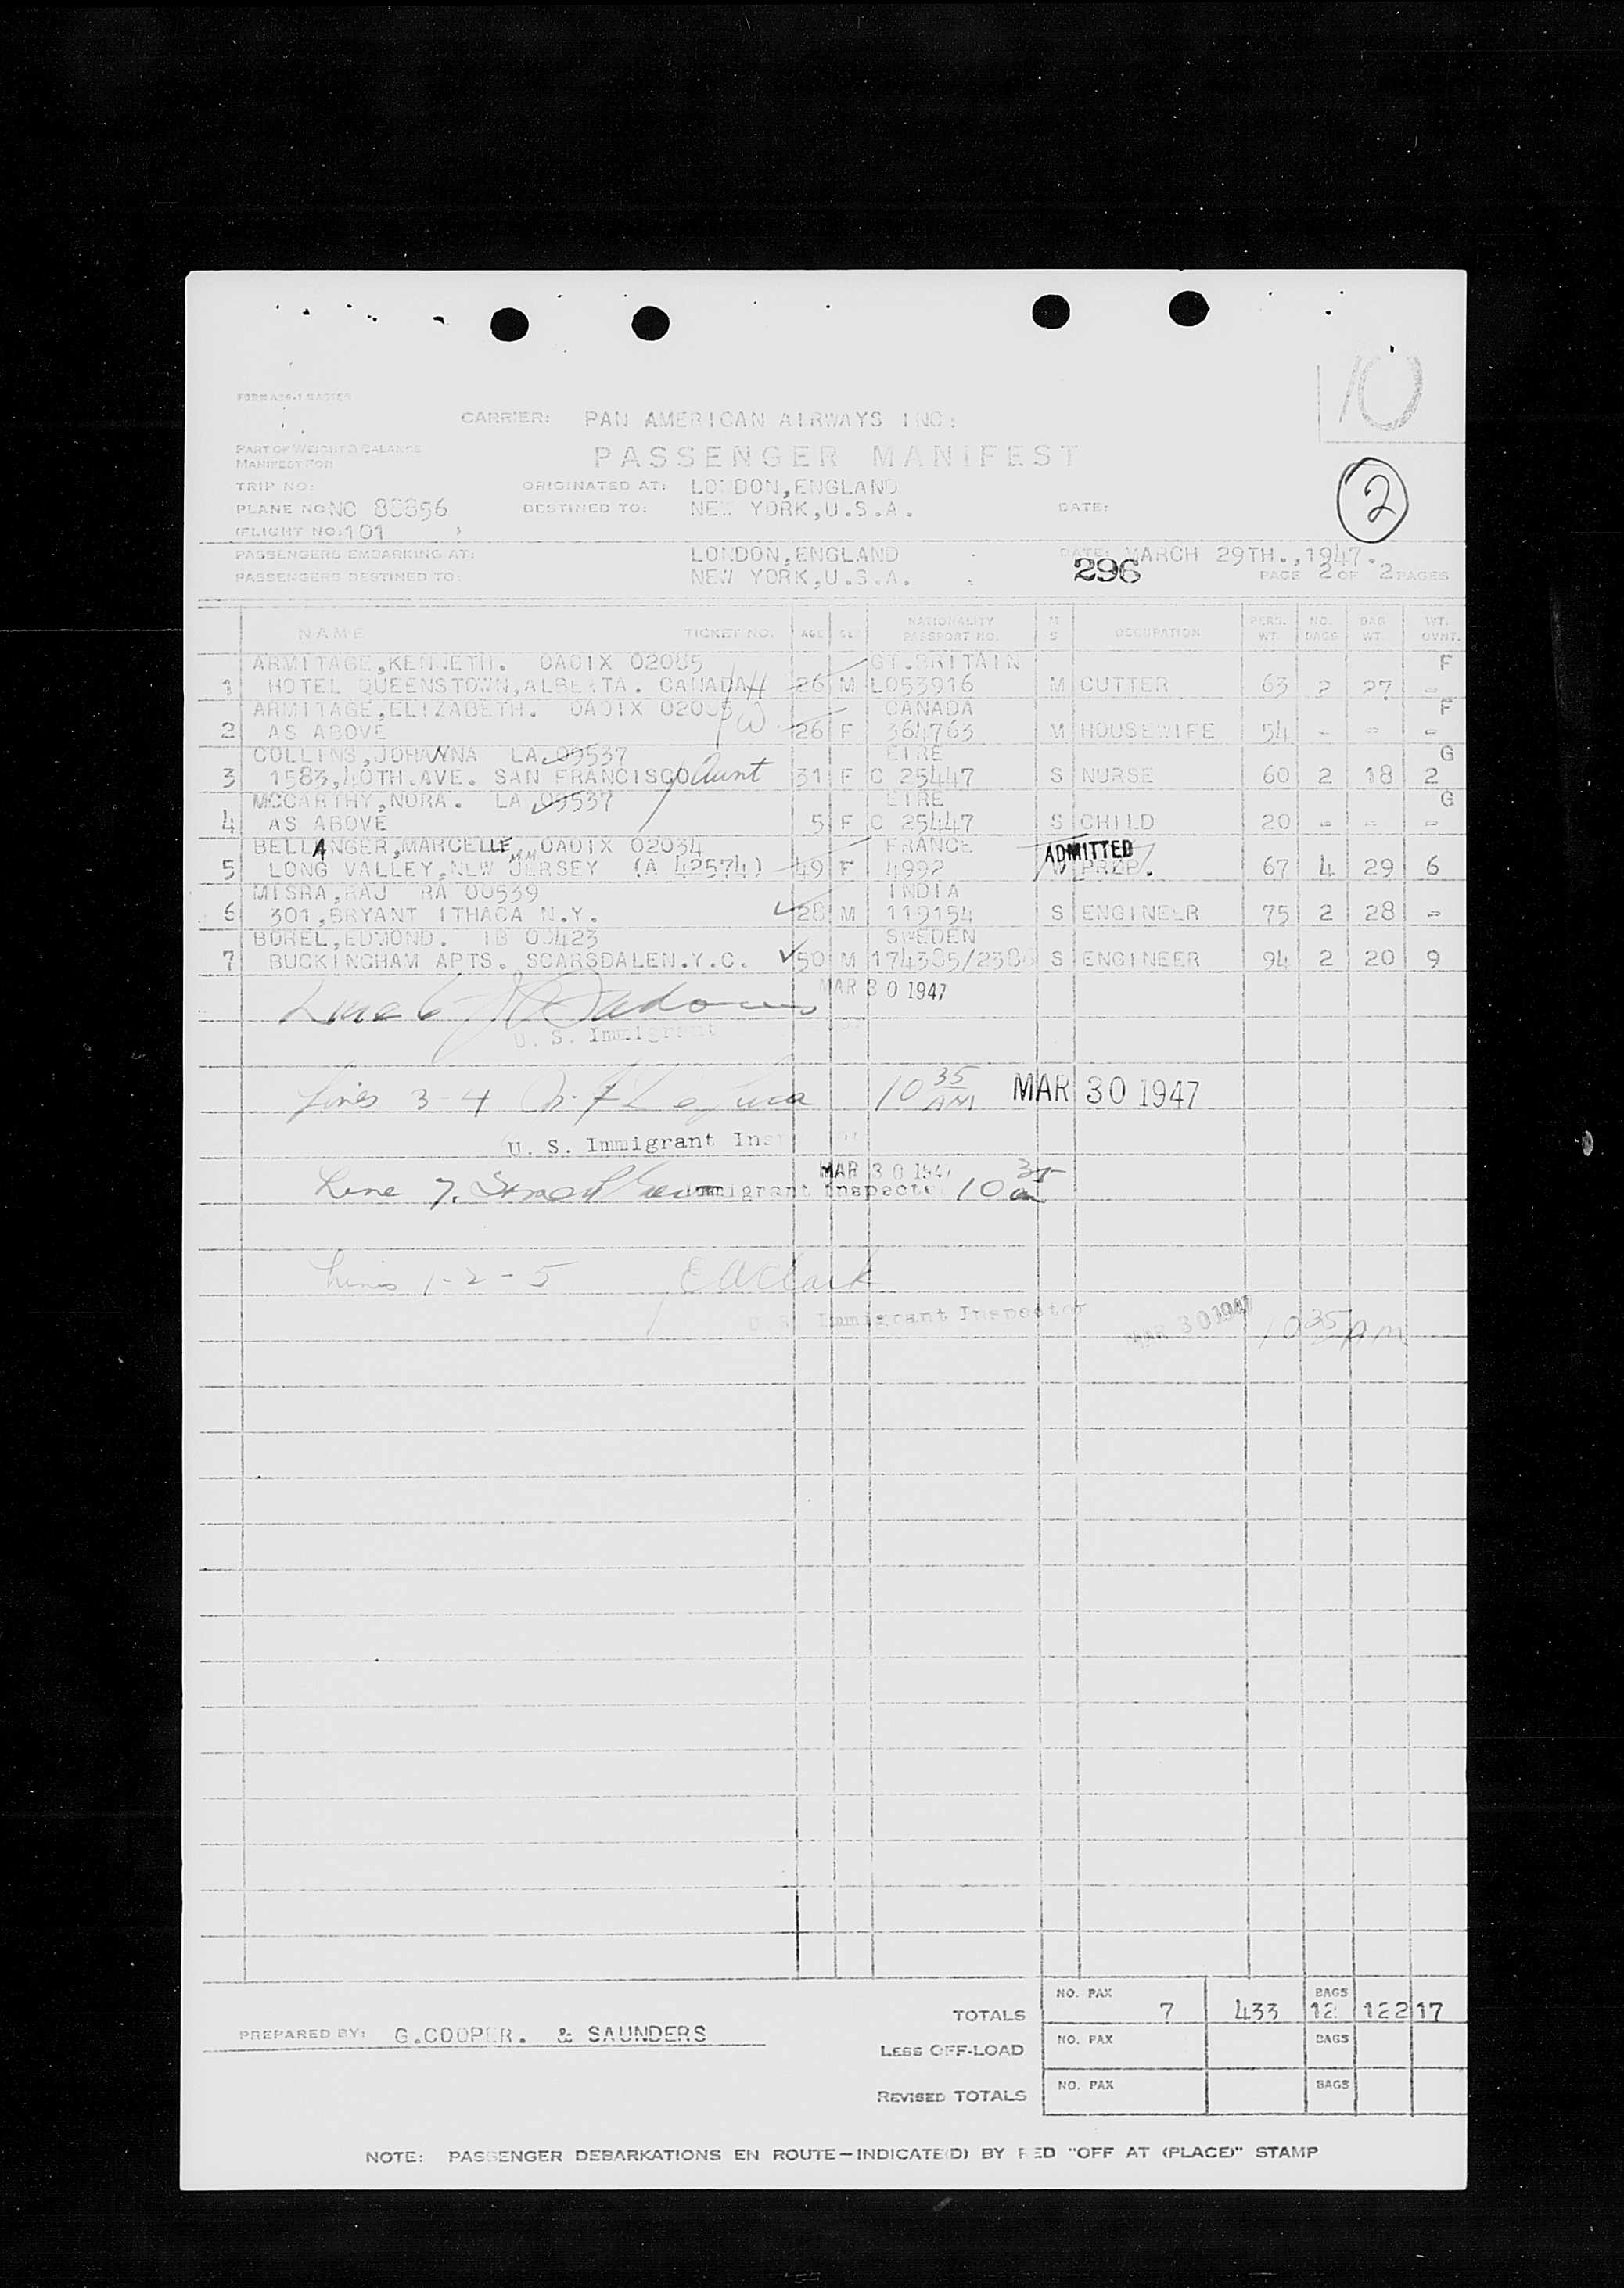 10
FORM A36-1 MASTER
CARRIER: PAN AMERICAN AIRWAYS INC:
PART OF WEIGHT & BALANCE
MANIFEST FOR
PASSENGER MANIFEST
2
TRIP NO: ORIGINATED AT: LONDON, ENGLAND
PLANE NO: NC 88856 DESTINED TO: NEW YORK, U.S.A. DATE:
(FLIGHT NO: 101 )
PASSENGERS EMBARKING AT: LONDON, ENGLAND DATE: MARCH 29TH., 1947.
PASSENGERS DESTINED TO: NEW YORK, U.S.A. 296 PAGE 2 OF 2 PAGES
NAME TICKET NO. AGE SEX NATIONALITY PASSPORT NO. M S OCCUPATION PERS. WT. NO. BAGS BAG WT. WT. OVNT.
ARMITAGE, KENNETH. OAOIX 02085 GT. BRITAIN F
1 HOTEL QUEENSTOWN, ALBERTA. CANADA H 26 M L053916 M CUTTER 63 2 27 -
ARMITAGE, ELIZABETH. OAOIX 02085 W CANADA F
2 AS ABOVE 26 F 364763 M HOUSEWIFE 54 - - -
COLLINS, JOHANNA LA 09537 EIRE G
3 1583, 40TH. AVE. SAN FRANCISCO Aunt 31 F C 25447 S NURSE 60 2 18 2
MCCARTHY, NORA. LA 09537 EIRE G
4 AS ABOVE 5 F C 25447 S CHILD 20 - - -
BELLANGER, MARCELLE MM OAOIX 02034 FRANCE ADMITTED
5 LONG VALLEY, NEW JERSEY (A 42574) 49 F 4992 W PROP. 67 4 29 6
MISRA, RAJ RA 00539 INDIA
6 301, BRYANT ITHACA N.Y. 28 M 119154 S ENGINEER 75 2 28 -
BOREL, EDMOND. IB 00423 SWEDEN
7 BUCKINGHAM APTS. SCARSDALE N.Y.C. 50 M 174385/2386 S ENGINEER 94 2 20 9
MAR 30 1947
Line 6
U. S. Immigrant
Lines 3-4 10 35 AM MAR 30 1947
U. S. Immigrant Ins
MAR 30 1947
Line 7. Immigrant Inspector 10 35 am
Lines 1-2-5 E A Clark
U. S. Immigrant Inspector MAR 30 1947 10 35 AM
TOTALS NO. PAX 7 433 BAGS 12 122 17
PREPARED BY: G. COOPER. & SAUNDERS
LESS OFF-LOAD NO. PAX BAGS
REVISED TOTALS NO. PAX BAGS
NOTE: PASSENGER DEBARKATIONS EN ROUTE—INDICATE(D) BY RED "OFF AT (PLACE)" STAMP